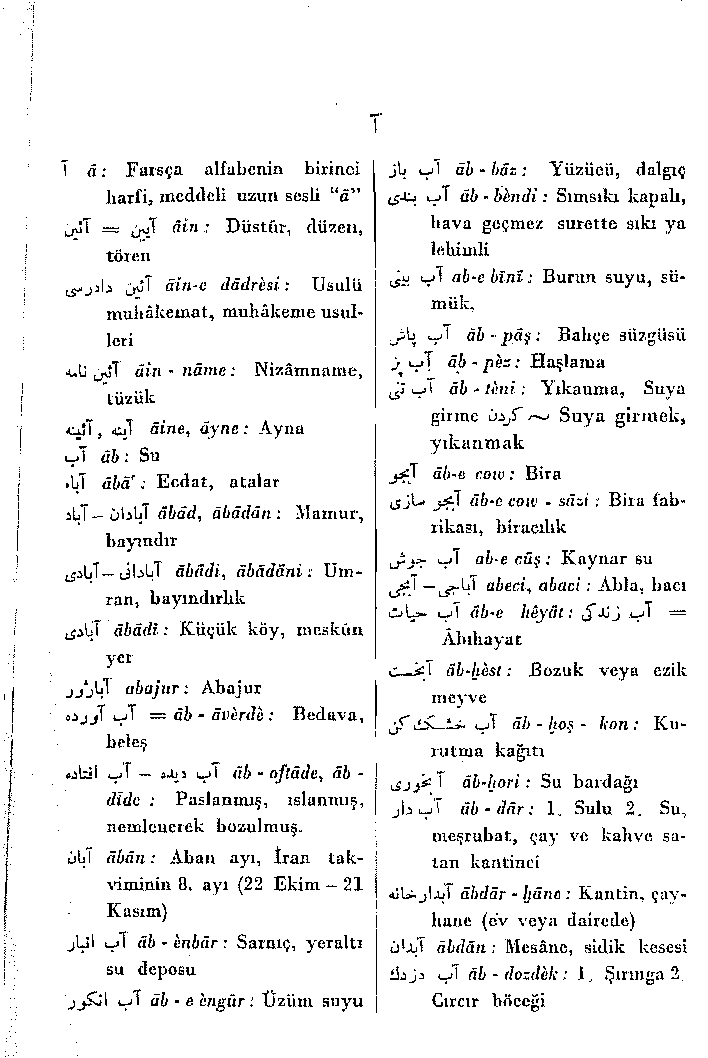 آ
آ ā: Farsça alfabenin birinci
harfi, meddeli uzun sesli “ā”
آئین = آیین āin: Düstûr, düzen,
tören
آئین دادرسی āin-e dādrèsi: Usulü
muhâkemat, muhâkeme usul-
leri
آئین نامه āin - nāme: Nizâmname,
tüzük
آینه , آئینه āine, āyne: Ayna
آب āb: Su
آباء ābā': Ecdat, atalar
آباد – آبادان ābād, ābādān: Mamur,
bayındır
آبادی – آبادانی ābādi, ābādāni: Um-
ran, bayındırlık
آبادی ābādi: Küçük köy, meskûn
yer
آباژور abajur: Abajur
آب آورده = āb - āvèrdè: Bedava,
beleş
آب افتاده – آب دیده āb - oftāde, āb -
dide: Paslanmış, ıslanmış,
nemlenerek bozulmuş.
آبان ābān: Aban ayı, İran tak-
viminin 8. ayı (22 Ekim – 21
Kasım)
آب انبار āb - ènbār: Sarnıç, yeraltı
su deposu
آب انگور āb - e èngūr: Üzüm suyu
آب باز āb - bāz: Yüzücü, dalgıç
آب بندی āb - bèndi: Sımsıkı kapalı,
hava geçmez surette sıkı ya
lehimli
آب بینی ab-e bīnī: Burun suyu, sü-
mük,
آب پاش āb - pāş: Bahçe süzgüsü
آب پز āb - pèz: Haşlama
آب تنی āb - tèni: Yıkanma, Suya
girme ~ کردن Suya girmek,
yıkanmak
آبجو āb-e cow: Bira
آبجو سازی āb-e cow - sāzi: Bira fab-
rikası, biracılık
آب جوش ab-e cūş: Kaynar su
آباجی – آبجی abeci, abaci: Abla, bacı
آب حیات āb-e hèyāt: آب زندگی =
Âbıhayat
آبخست āb-ḫèst: Bozuk veya ezik
meyve
آب خشک کن āb - ḫoş - kon: Ku-
rutma kağıtı
آبخوری āb-ḫori: Su bardağı
آب دار āb - dār: 1. Sulu 2. Su,
meşrubat, çay ve kahve sa-
tan kantinci
آبدارخانه ābdār - ḫāne: Kantin, çay-
hane (ev veya dairede)
آبدان ābdān: Mesâne, sidik kesesi
آب دزدک āb - dozdèk: 1. Şırınga 2.
Cırcır böceği